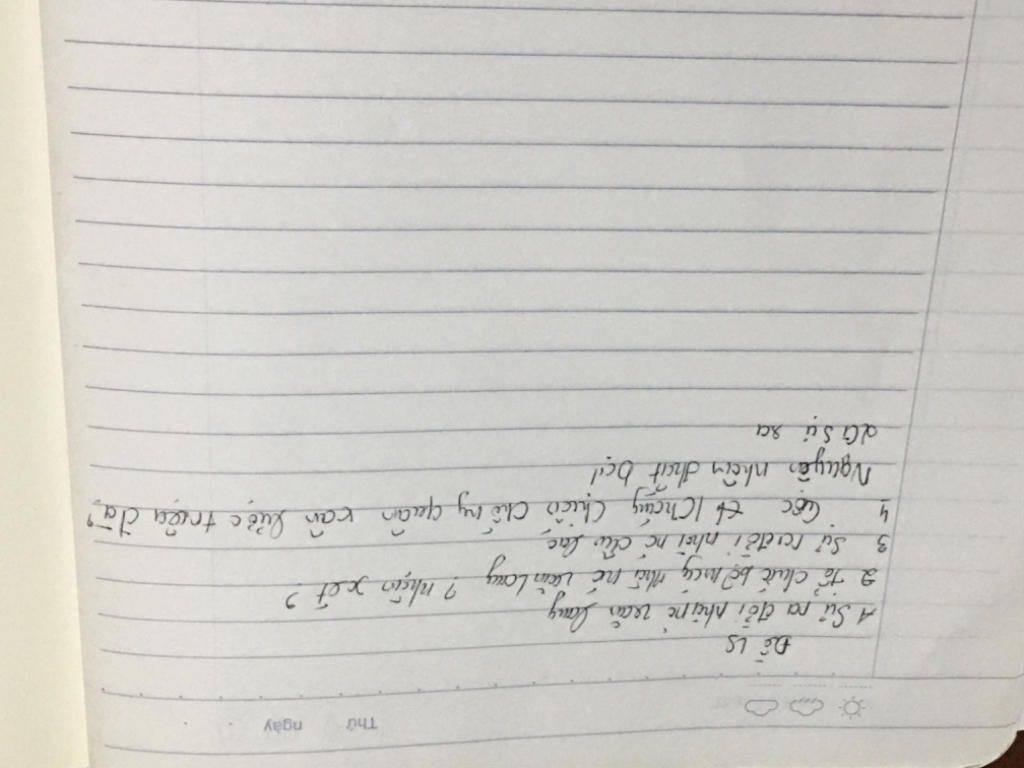 Thứ ngày
Đề LS
1 Sự ra đời nhà nc văn lang
2 Tổ chức bộ máy nhà nc văn Lang ? nhận xét ?
3 Sự ra đời nhà nc âu lạc
4 Cuộc k/c chống quân xâm lược triệu đà ?
Nguyên nhân thất bại